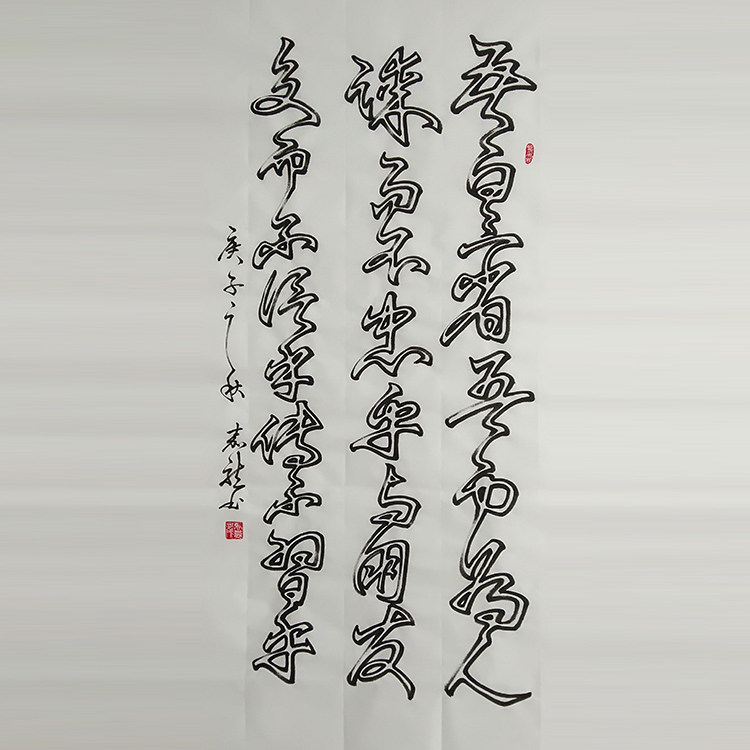 吾日三省吾身为人
谋而不忠乎与朋友
交而不信乎傳不習乎
庚子之秋 书